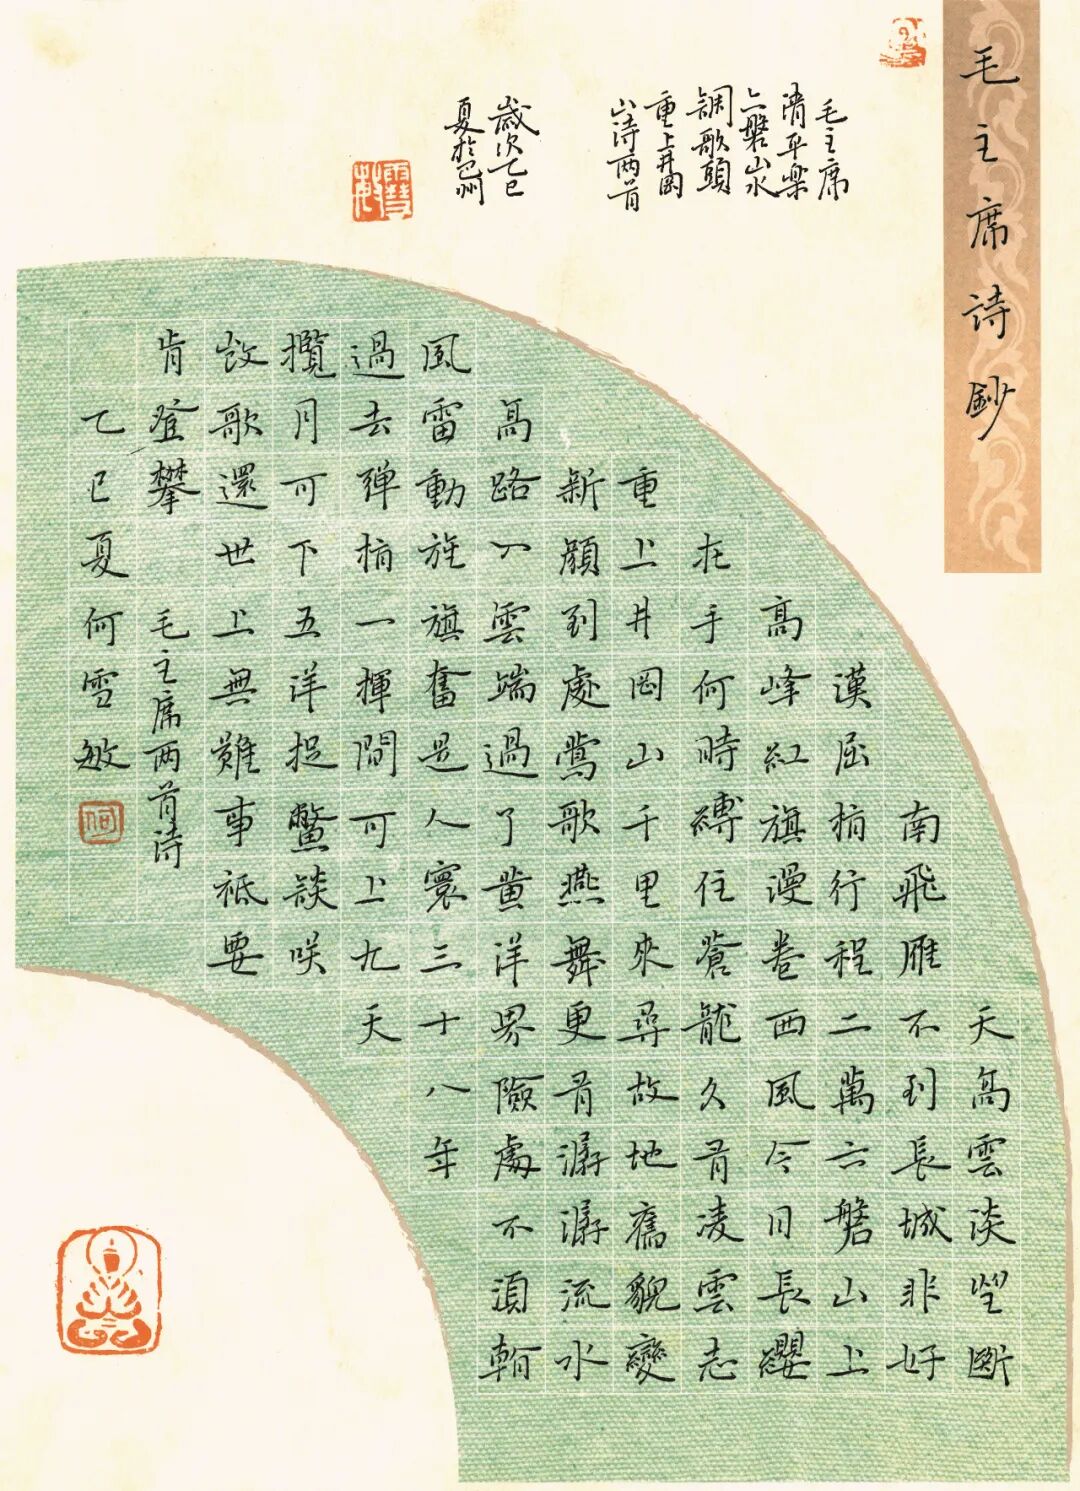 毛主席詩鈔
毛主席
清平楽
六磐山水
調歌頭
重上井岡
山诗两首
歲次乙巳
夏於巴州
天高雲淡望斷
南飛雁不到長城非好
漢屈指行程二萬六磐山上
高峰紅旗漫卷西風今日長纓
在手何時縛住蒼龍久有凌雲志
重上井岡山千里來尋故地舊貌變
新顔到處鶯歌燕舞更有潺潺流水
高路入雲端過了黄洋界險處不須看
風雷動旌旗奮是人寰三十八年
過去弹指一揮間可上九天
攬月可下五洋捉鱉談咲
凱歌還世上無難事祗要
肯登攀 毛主席两首詩
乙巳夏何雪敏
何